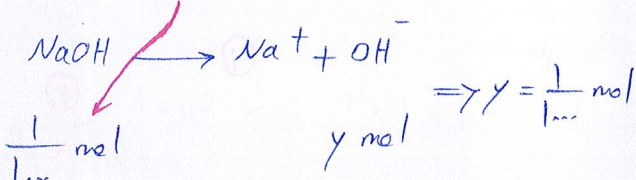 NaOH → Na⁺ + OH⁻
1/1... mol y mol => y = 1/1... mol